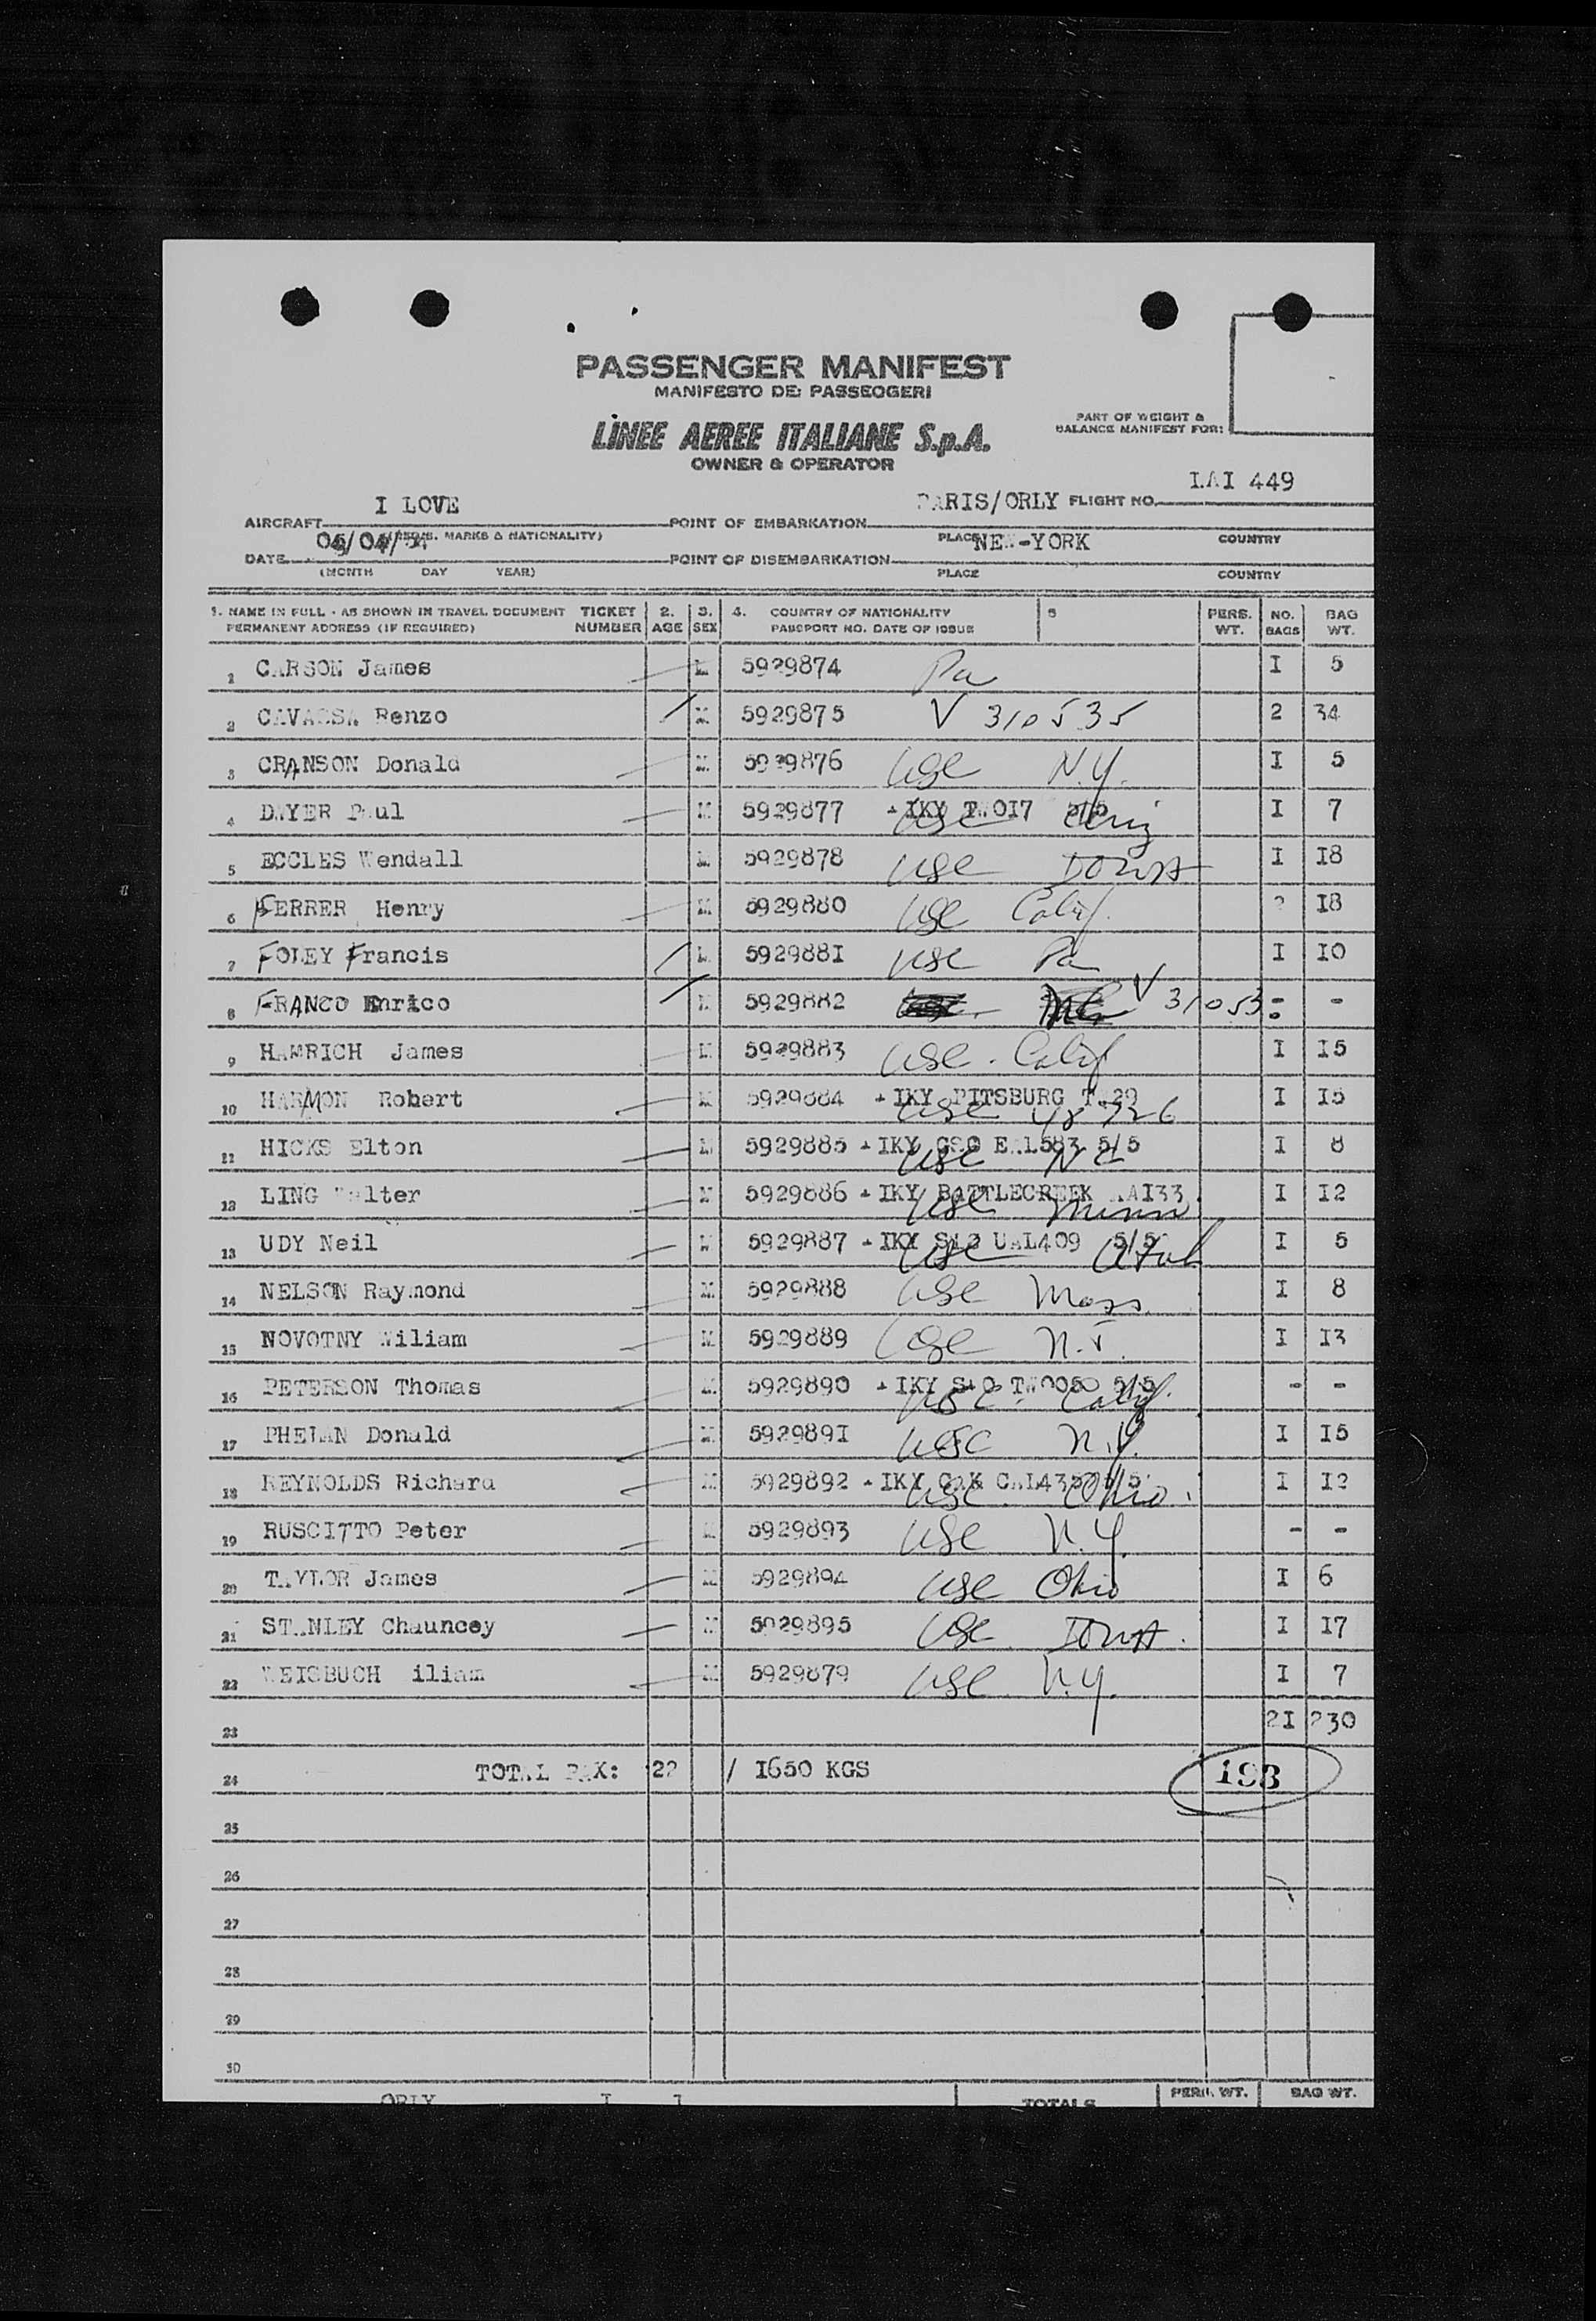 PASSENGER MANIFEST
MANIFESTO DEI PASSEGGERI
LINEE AEREE ITALIANE S.p.A.
OWNER & OPERATOR
PART OF WEIGHT &
BALANCE MANIFEST FOR:
LAI 449
I LOVE PARIS/ORLY FLIGHT NO.
AIRCRAFT POINT OF EMBARKATION
MARKS & NATIONALITY) PLACE NEW-YORK COUNTRY
DATE POINT OF DISEMBARKATION
(MONTH DAY YEAR) PLACE COUNTRY
1. NAME IN FULL - AS SHOWN IN TRAVEL DOCUMENT TICKET 2. 3. 4. COUNTRY OF NATIONALITY 5 PERS. NO. BAG
PERMANENT ADDRESS (IF REQUIRED) NUMBER AGE SEX PASSPORT NO. DATE OF ISSUE WT. BAGS WT.
1 CARSON James M 5929874 Pa I 5
2 CAVAGSA Renzo M 5929875 V 310535 2 34
3 CRANSON Donald M 5929876 USC N.Y. I 5
4 DWYER Paul M 5929877 IKY TW017 5/5 USC I 7
5 ECCLES Wendall M 5929878 USC IOWA I I8
6 FERRER Henry M 5929880 USC Calif. I8
7 FOLEY Francis M 592988I USC Pa I I0
8 FRANCO Enrico M 5929882 V 31053 -
9 HAMRICH James M 5929883 USC. Calif I I5
10 HARMON Robert M 5929884 IKY PITSBURG TW29 USC I I5
11 HICKS Elton M 5929885 IKY GSO EAL583 5/5 USC NC I 8
12 LING Walter M 5929886 IKY BATTLECREEK USC Minn I I2
13 UDY Neil M 5929887 IKY SLC UAL409 5/5 USC Utah I 5
14 NELSON Raymond M 5929888 USC Mass. I 8
15 NOVOTNY Wiliam M 5929889 USC N.J. I I3
16 PETERSON Thomas M 5929890 IKY 5/5 USC. Calif. - -
17 PHELAN Donald M 592989I USC N.Y. I I5
18 REYNOLDS Richard M 5929892 IKY CAK USC. Ohio. I I2
19 RUSCITTO Peter M 5929893 USC N.Y. - -
20 TAYLOR James M 5929894 USC Ohio I 6
21 STANLEY Chauncey M 5929895 USC IOWA. I I7
22 WEISBUCH iliam M 5929879 USC N.Y. I 7
23 2I 230
24 TOTAL PAX: 22 / I650 KGS 193
25
26
27
28
29
30
ORLY TOTALS PERS. WT. BAG WT.